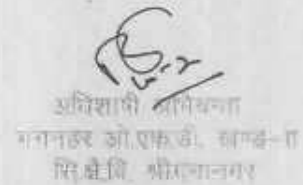 अधिशाषी अभियन्ता
गंगनहर ओ.एफ.डी. खण्ड-II
सि.क्षे.वि. श्रीगंगानगर